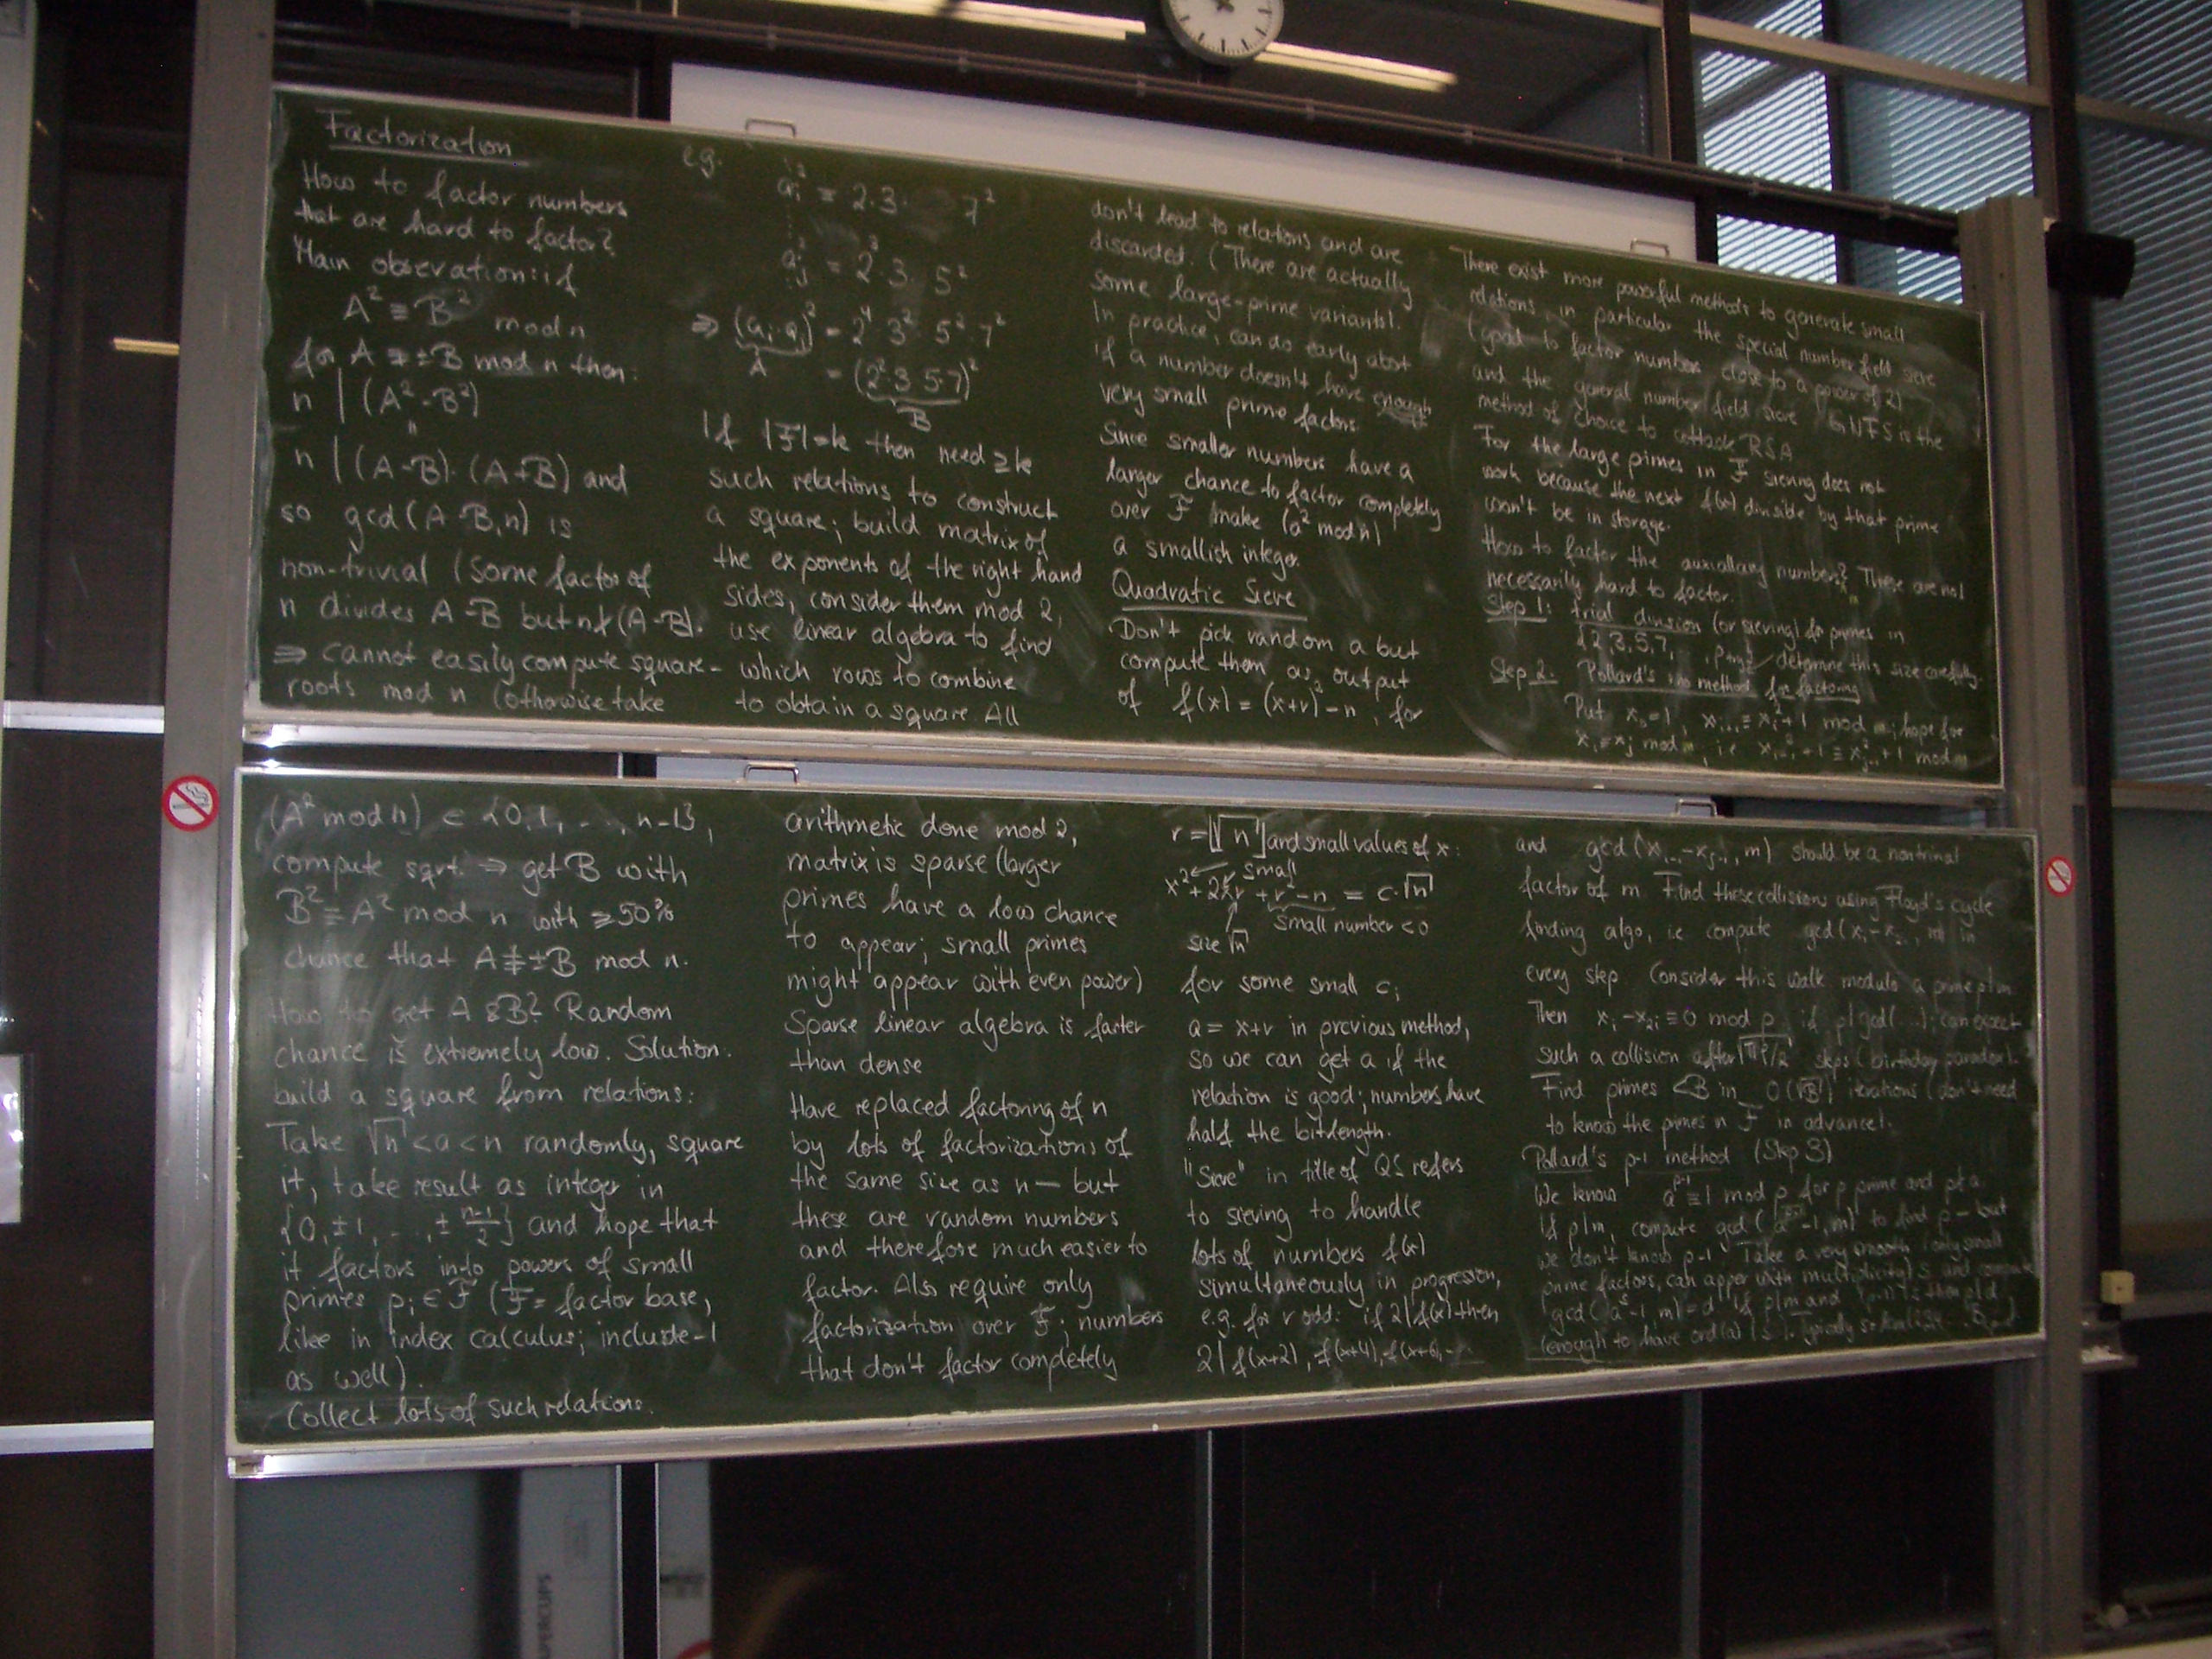 Factorization
How to factor numbers
that are hard to factor?
Main observation: if
A² ≡ B² mod n
for A ≢ ±B mod n then:
n | (A²-B²)
"
n | (A-B)·(A+B) and
so gcd(A-B,n) is
non-trivial (some factor of
n divides A-B but n∤(A-B).
⇒ cannot easily compute square-
roots mod n (otherwise take
(A² mod n) ∈ {0,1,...,n-1},
compute sqrt. ⇒ get B with
B² ≡ A² mod n with ≥50%
chance that A ≢ ±B mod n.
How to get A & B? Random
chance is extremely low. Solution:
build a square from relations:
Take √n < a < n randomly, square
it, take result as integer in
{0,±1,...,± (n-1)/2} and hope that
it factors into powers of small
primes pᵢ ∈ F (F = factor base,
like in index calculus; include -1
as well).
Collect lots of such relations.
e.g.
aᵢ² = 2·3· 7²
aⱼ² = 2³·3·5²
⇒ (aᵢ·aⱼ)² = 2⁴·3²·5²·7²
A
= (2²·3·5·7)²
B
If |F|=k then need ≥k
such relations to construct
a square; build matrix of
the exponents of the right hand
sides, consider them mod 2,
use linear algebra to find
which rows to combine
to obtain a square. All
arithmetic done mod 2,
matrix is sparse (larger
primes have a low chance
to appear; small primes
might appear with even power)
Sparse linear algebra is faster
than dense
Have replaced factoring of n
by lots of factorizations of
the same size as n — but
these are random numbers
and therefore much easier to
factor. Also require only
factorization over F; numbers
that don't factor completely
don't lead to relations and are
discarded. (There are actually
some large-prime variants).
In practice, can do early abort
if a number doesn't have enough
very small prime factors.
Since smaller numbers have a
larger chance to factor completely
over F make (a² mod n)
a smallish integer.
Quadratic Sieve
Don't pick random a but
compute them as output
of f(x) = (x+r)²-n, for
r = ⌊√n⌋ and small values of x:
small
x²+2xr+r²-n = c·√n
size √n small number <0
for some small c;
a = x+r in previous method,
so we can get a if the
relation is good; numbers have
half the bitlength.
"Sieve" in title of QS refers
to sieving to handle
lots of numbers f(x)
simultaneously in progression,
e.g. for r odd: if 2|f(x) then
2|f(x+2), f(x+4), f(x+6),...
There exist more powerful methods to generate small
relations, in particular the special number field sieve
(good to factor numbers close to a power of 2)
and the general number field sieve. GNFS is the
method of choice to attack RSA
For the large primes in F sieving does not
work because the next f(x) divisible by that prime
won't be in storage.
How to factor the auxillary numbers? These are not
necessarily hard to factor.
Step 1: trial division (or sieving) for primes in
{2,3,5,7, determine this size carefully.
Step 2: Pollard's rho method for factoring
Put x₀=1, xᵢ₊₁≡xᵢ²+1 mod m; hope for
xᵢ≡xⱼ mod m, i.e. xᵢ₋₁²+1≡xⱼ₋₁²+1 mod m
and gcd(xᵢ₋₁-xⱼ₋₁,m) should be a nontrivial
factor of m. Find these collisions using Floyd's cycle
finding algo, i.e. compute gcd(xᵢ-x₂ᵢ, m) in
every step. Consider this walk modulo a prime p|m
Then xᵢ-x₂ᵢ≡0 mod p if p|gcd(...); can expect
such a collision after √(πp/2) steps (birthday paradox).
Find primes <B in O(√B) iterations (don't need
to know the primes in F in advance).
Pollard's p-1 method (Step 3)
We know aᵖ⁻¹≡1 mod p for p prime and p∤a
If p|m, compute gcd(aᵖ⁻¹-1,m) to find p — but
we don't know p-1. Take a very smooth (only small
prime factors, can appear with multiplicity) s and compute
gcd(aˢ-1,m)=d if p|m and (p-1)|s then p|d
(enough to have ord(a)|s). Typically s=
SUPERCUPS